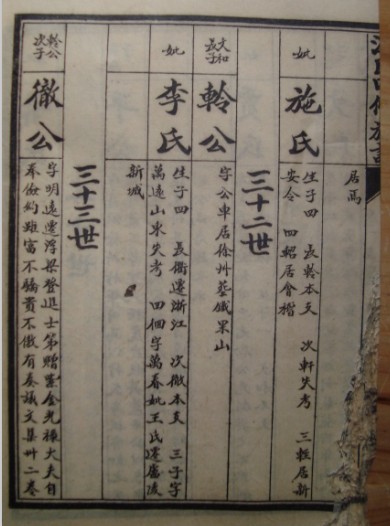 居焉
妣
施氏
生子四 長幹本支 次軒失考 三輊居新
安令 四軺居會稽
三十二世
文和
長子
軨公
字公車居徐州葬鐵果山
妣
李氏
生子四 長衢遷浙江 次徹本支 三子字
萬遠山東失考 四個字萬春妣王氏遷廬陵
新城
三十三世
軨公
次子
徹公
字明遠遷浮梁登進士第贈紫金光祿大夫自
奉儉約雖富不驕貴不傲有奏議文集卅二卷